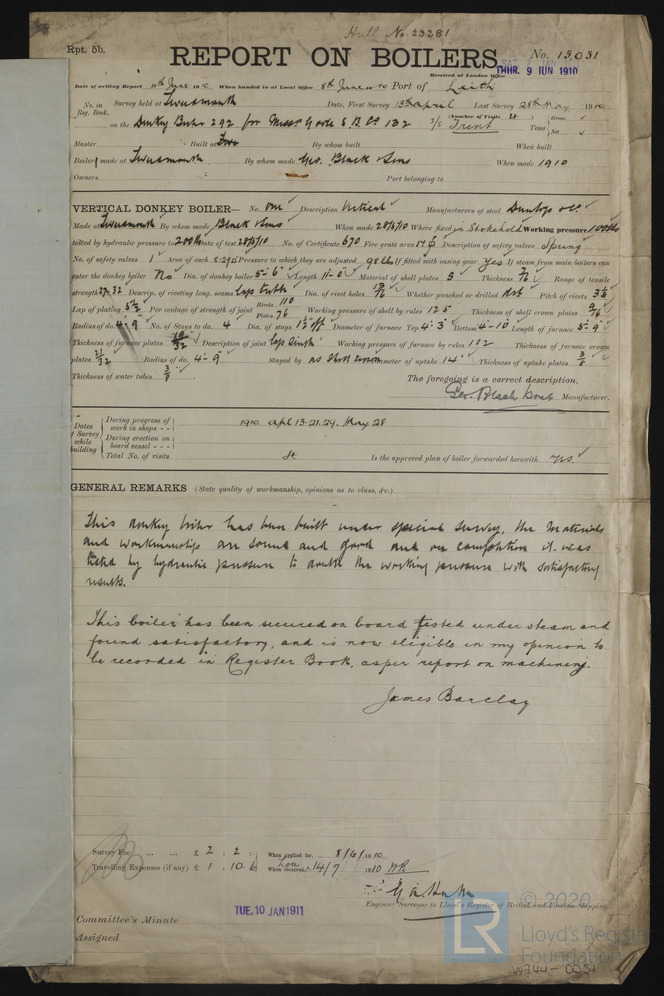 Hull No. 23281
Rpt. 5b.
REPORT ON BOILERS.
No. 13,031
Received at London Office
THUR. 9 JUN 1910
Date of writing Report 10 When handed in at Local Office 8th June 10 Port of Leith
No. in Reg. Book. Survey held at Date, First Survey 13th April Last Survey 28th May 1910
on the Donkey Boiler 292 for Mess Goole S.B. Co 132 S/S Trent (Number of Visits 4) Tons Gross Net
Master Built at By whom built When built
Boiler made at By whom made Geo. Black & Sons When made 1910
Owners Port belonging to
VERTICAL DONKEY BOILER— No. One Description Vertical Manufacturers of steel Dunlop & Co.
Made at By whom made Black & Sons When made 28/5/10 Where fixed in Stokehold Working pressure 100 lbs
tested by hydraulic pressure to 200 lbs Date of test 28/5/10 No. of Certificate 670 Fire grate area Description of safety valves Spring
No. of safety valves 1 Area of each 5.290 Pressure to which they are adjusted 98 lbs If fitted with easing gear Yes If steam from main boilers can
enter the donkey boiler No Dia. of donkey boiler 5'-6" Length 11'-0" Material of shell plates S Thickness 7/16 Range of tensile
strength 27-32 Descrip. of riveting long. seams Lap Dia. of rivet holes 13/16 Whether punched or drilled Pitch of rivets
Lap of plating 5 1/2 Per centage of strength of joint Rivets 110 Plates 76 Working pressure of shell by rules 125 Thickness of shell crown plates 9/16
Radius of do. 4'-9" No. of Stays to do. 4 Dia. of stays Diameter of furnace Top 4'-3" Bottom 4'-10" Length of furnace 5'-9"
Thickness of furnace plates 19/32 Description of joint Lap Working pressure of furnace by rules 102 Thickness of furnace crown
plates 21/32 Radius of do. 4'-9" Stayed by as Shell crown Diameter of uptake 14" Thickness of uptake plates 3/8
Thickness of water tubes 3/8
The foregoing is a correct description,
Geo. Black & Sons Manufacturer.
Dates of Survey while building
During progress of work in shops - - 1910 Apl 13-21-29. May 28
During erection on board vessel - - -
Total No. of visits 4 Is the approved plan of boiler forwarded herewith yes.
GENERAL REMARKS (State quality of workmanship, opinions as to class, &c.)
This donkey boiler has been built under special survey, the materials
and workmanship are sound and good and on completion it was
tested by hydraulic pressure to double the working pressure with satisfactory
results.
This boiler has been secured on board tested under steam and
found satisfactory, and is now eligible in my opinion to
be recorded in Register Book, as per report on machinery.
James Barclay
Survey Fee ... ... £ 2 : 2 : When applied for, 8/6/1910
Travelling Expenses (if any) £ 1 : 10 : 6 When received, 14/7 1910
Engineer Surveyor to Lloyd's Register of British and Foreign Shipping.
TUE. 10 JAN 1911
Committee's Minute
Assigned
© 2020
LR
Lloyd's Register
Foundation
W344-0051